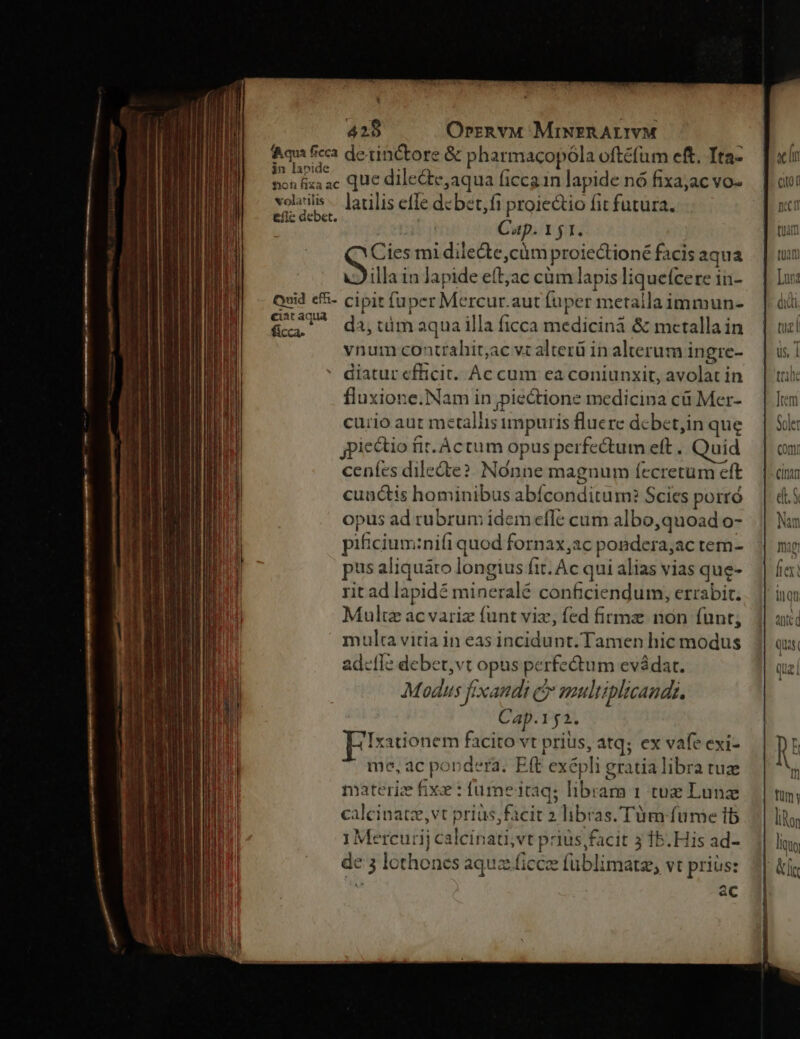 428 OPERVM MINERALIVM
Aqua sicca
in lapide
non fixa ac
volatilis
esse debet.
de tinctore & pharmacopóla ostésum est. Ita-
que dilecte, aqua sicca in lapide nó fixa, ac vo-
latilis esse debet, si proiectio fit futura.
Cap. 151.
SCies mi dilecte, cùm proiectioné facis aqua
illa in lapide est, ac cùm lapis liquescere in-
Quid effi-
ciat aqua
sicca.
cipit super Mercur. aut super metalla immun-
da, tùm aqua illa sicca medicinā & metalla in
vnum contrahit, ac vt alterū in alterum ingre-
diatur efficit. Ac cum ea coniunxit, avolat in
fluxione. Nam in piectione medicina cū Mer-
curio aut metallis impuris fluere debet, in que
piectio fit. Actum opus perfectum est. Quid
censes dilecte? Nónne magnum secretum est
cunctis hominibus absconditum? Scies porró
opus ad rubrum idem esse cum albo, quoad o-
pificium: nisi quod fornax, ac pondera, ac tem-
pus aliquáto longius fit. Ac qui alias vias quę-
rit ad lapidé mineralé conficiendum, errabit.
Multæ ac variæ sunt viæ, sed firmæ non sunt;
multa vitia in eas incidunt. Tamen hic modus
adesse debet, vt opus perfectum evâdat.
Modus fixandi & multiplicandi.
Cap. 152.
FIxationem facito vt priùs, atq; ex vase exi-
me, ac pondera. Est exépli gratia libra tuæ
materiæ fixæ: sume itaq; libram 1 tuæ Lunæ
calcinatæ, vt priùs, facit 2 libras. Tùm sume ℔
1 Mercurij calcinati, vt priùs, facit 3 ℔. His ad-
de 3 lothones aquæ siccæ sublimatæ, vt priùs:
ac